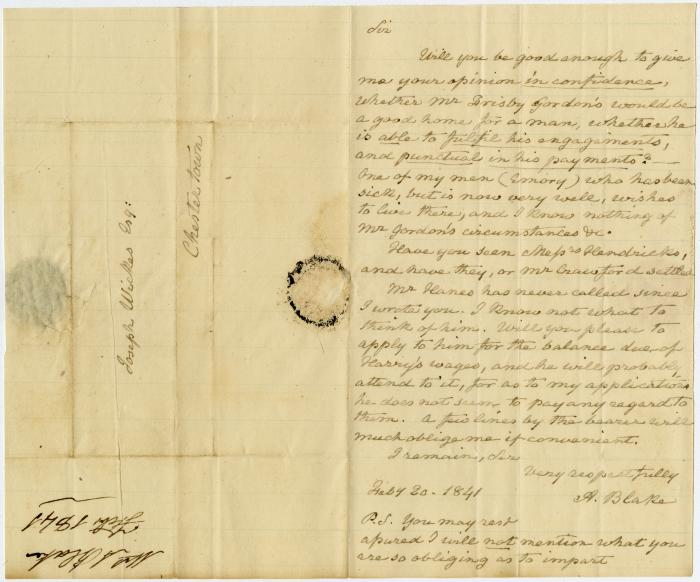 Sir
Will you be good enough to give
me your opinion in confidence,
whether Mr Grisby Gordon's would be
a good home for a man, whether he
is able to fulfil his engagements,
and punctual in his payments?—
One of my men (Emory) who has been
sick, but is now very well, wishes
to live there, and I know nothing of
Mr Gordon's circumstances &c.
Have you seen Messrs Hendricks,
and have they, or Mr Crawford settled
Mr Hanes has never called since
I wrote you. I know not what to
think of him. Will you please to
apply to him for the balance due, of
Harry's wages, and he will probably
attend to it, for as to my applications
he does not seem to pay any regard to
them. A few lines by the bearer will
much oblige me if convenient.
I remain, Sir
Very respectfully
Feby 20. 1841
A. Blake
P.S. You may rest
assured I will not mention what you
are so obliging as to impart
Joseph Wickes Esq:
Chestertown
A Blake
Feb 1841